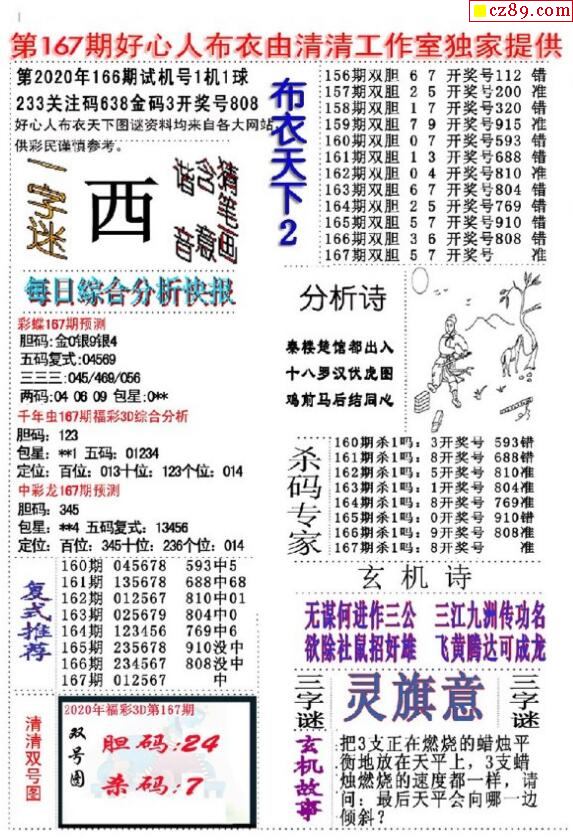 cz89.com
第167期好心人布衣由清清工作室独家提供
第2020年166期试机号1机1球
233关注码638金码3开奖号808
好心人布衣天下图谜资料均来自各大网站,
供彩民谨慎参考。
一字迷
西
猪羊画含意皆吉
每日综合分析快报
彩蝶167期预测
胆码:金0银9银4
五码复式:04569
三三三:045/469/056
两码:04 06 09 包星:0**
千年虫167期福彩3D综合分析
胆码: 123
包星: **1 五码: 01234
定位: 百位: 013十位: 123个位: 014
中彩龙167期预测
胆码: 345
包星: **4 五码复式: 13456
定位: 百位: 345十位: 236个位: 014
复式推荐
160期 045678 593中5
161期 135678 688中68
162期 012567 810中01
163期 025679 804中0
164期 123456 769中6
165期 235678 910没中
166期 234567 808没中
167期 012567 中
清清双号图
2020年福彩3D第167期
双号图
胆码:24
杀码:7
布衣天下2
156期双胆 6 7 开奖号112 错
157期双胆 2 5 开奖号200 准
158期双胆 1 7 开奖号320 错
159期双胆 7 9 开奖号915 准
160期双胆 0 7 开奖号593 错
161期双胆 1 3 开奖号688 错
162期双胆 0 4 开奖号810 准
163期双胆 6 7 开奖号804 错
164期双胆 2 5 开奖号769 错
165期双胆 5 7 开奖号910 错
166期双胆 3 6 开奖号808 错
167期双胆 5 7 开奖号 准
分析诗
秦楼楚馆都出入
十八罗汉伏虎图
鸡前马后结同心
杀码专家
160期杀1吗: 3开奖号 593错
161期杀1吗: 8开奖号 688错
162期杀1吗: 5开奖号 810准
163期杀1吗: 1开奖号 804准
164期杀1吗: 8开奖号 769准
165期杀1吗: 0开奖号 910错
166期杀1吗: 9开奖号 808准
167期杀1吗: 8开奖号 准
玄机诗
无谋何进作三公 三江九洲传功名
欲除社鼠招奸雄 飞黄腾达可成龙
三字谜
灵旗意
三字谜
玄机故事
把3支正在燃烧的蜡烛平
衡地放在天平上, 3支蜡
烛燃烧的速度都一样, 请
问: 最后天平会向哪一边
倾斜?